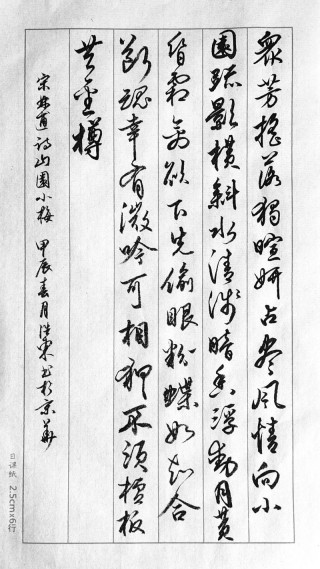 眾芳搖落獨暄妍占盡風情向小
園疏影橫斜水清淺暗香浮動月黃
昏霜禽欲下先偷眼粉蝶如知合
斷魂幸有微吟可相狎不須檀板
共金樽
宋林逋詩山園小梅 甲辰春月 書於京華
日课纸 2.5cm×6行